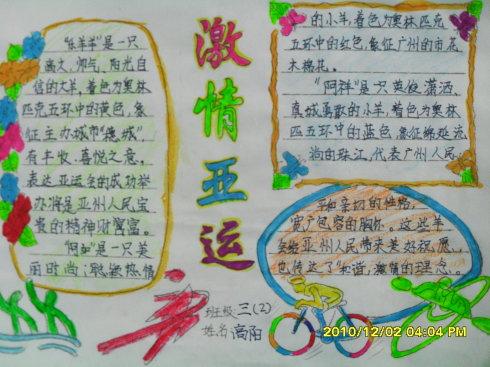 激情亚运
"乐羊羊"是一只
高大、帅气、阳光自
信的大羊,着色为奥林
匹克五环中的黄色,象
征主办城市"穗城",
有丰收、喜悦之意。
表达亚运会的成功举
办将是亚州人民宝
贵的精神财富富。
"阿如"是一只美
丽时尚、聪颖热情
的小羊,着色为奥林匹克
五环中的红色,象征广州的市花
木棉花。
"阿祥"是只英俊潇洒、
真诚勇敢的小羊,着色为奥林
匹克五环中的蓝色,象征绵延流
淌的珠江,代表广州人民
平和亲切的性格,
宽广包容的胸怀。这些羊
会给亚州人民带来美好祝愿,
也传达了"和谐,激情的理念。
班级:三(2)
姓名:高阳
2010/12/02 04:04 PM